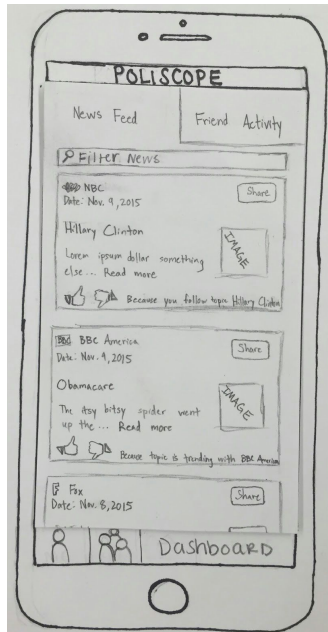 POLISCOPE
News Feed
Friend Activity
Filter News
NBC
Share
Date: Nov. 9, 2015
Hillary Clinton
IMAGE
Lorem ipsum dollar something
else... Read more
Because you follow topic Hillary Clinton
BBC BBC America
Share
Date: Nov. 9, 2015
Obamacare
IMAGE
The itsy bitsy spider went
up the ... Read more
Because topic is trending with BBC America
F Fox
Share
Date: Nov. 8, 2015
Dashboard